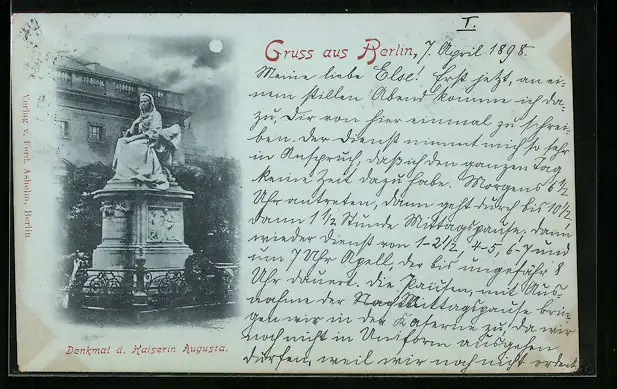 I.
Gruss aus Berlin, 7. April 1898.
Meine liebe Else! Erst jetzt, an ei-
nem stillen Abend komme ich da-
zu, Dir von hier einmal zu schrei-
ben. Der Dienst nimmt mich so sehr
in Anspruch, daß ich den ganzen Tag
keine Zeit dazu habe. Morgens 6 1/2
Uhr antreten, dann geht durch bis 10 1/2
dann 1 1/2 Stunde Mittagspause. dann
wieder Dienst von 1-2 1/2, 4-5, 6-7 und
um 7 Uhr Apell, der bis ungefähr 8
Uhr dauert. Die Pausen, mit Aus
nahme der Mittagspause brin
gen wir in der Kaserne zu, da wir
noch nicht in Uniform ausgehen
dürfen, weil wir noch nicht ordent
Verlag v. Ferd. Ashelm, Berlin
Denkmal d. Kaiserin Augusta.